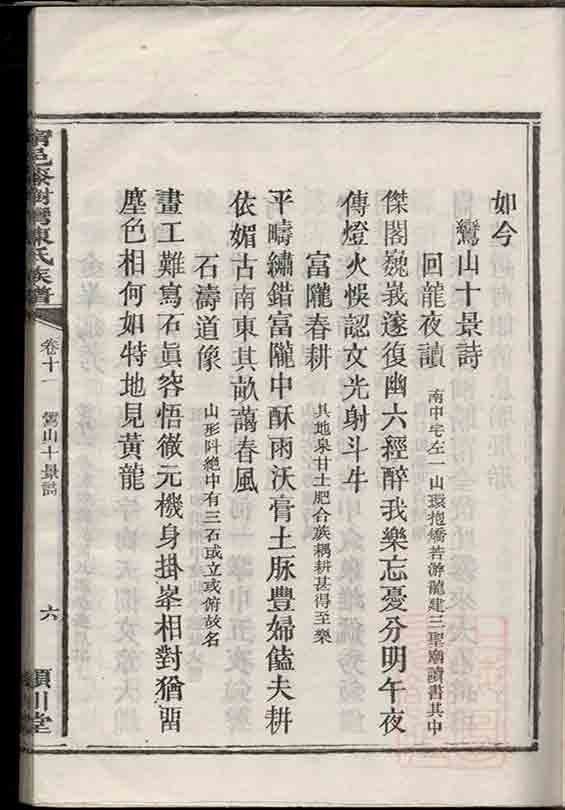 如今
鸞山十景詩
回龍夜讀 南中宅左一山環抱矯若游龍建三聖廟讀書其中
傑閣巍峩邃復幽六經醉我樂忘憂分明午夜
傳燈火悞認文光射斗牛
富隴春耕 其地泉甘土肥合族耦耕甚得至樂
平疇繡錯富隴中酥雨沃膏土脉豐婦饁夫耕
依媚古南東其畝藹春風
石濤道像 山形阧絶中有三石或立或俯故名
畫工難寫石眞容悟徹元機身掛峯相對猶畱
塵色相何如特地見黃龍
陳氏族譜
卷十一
鸞山十景詩
六
潁川堂